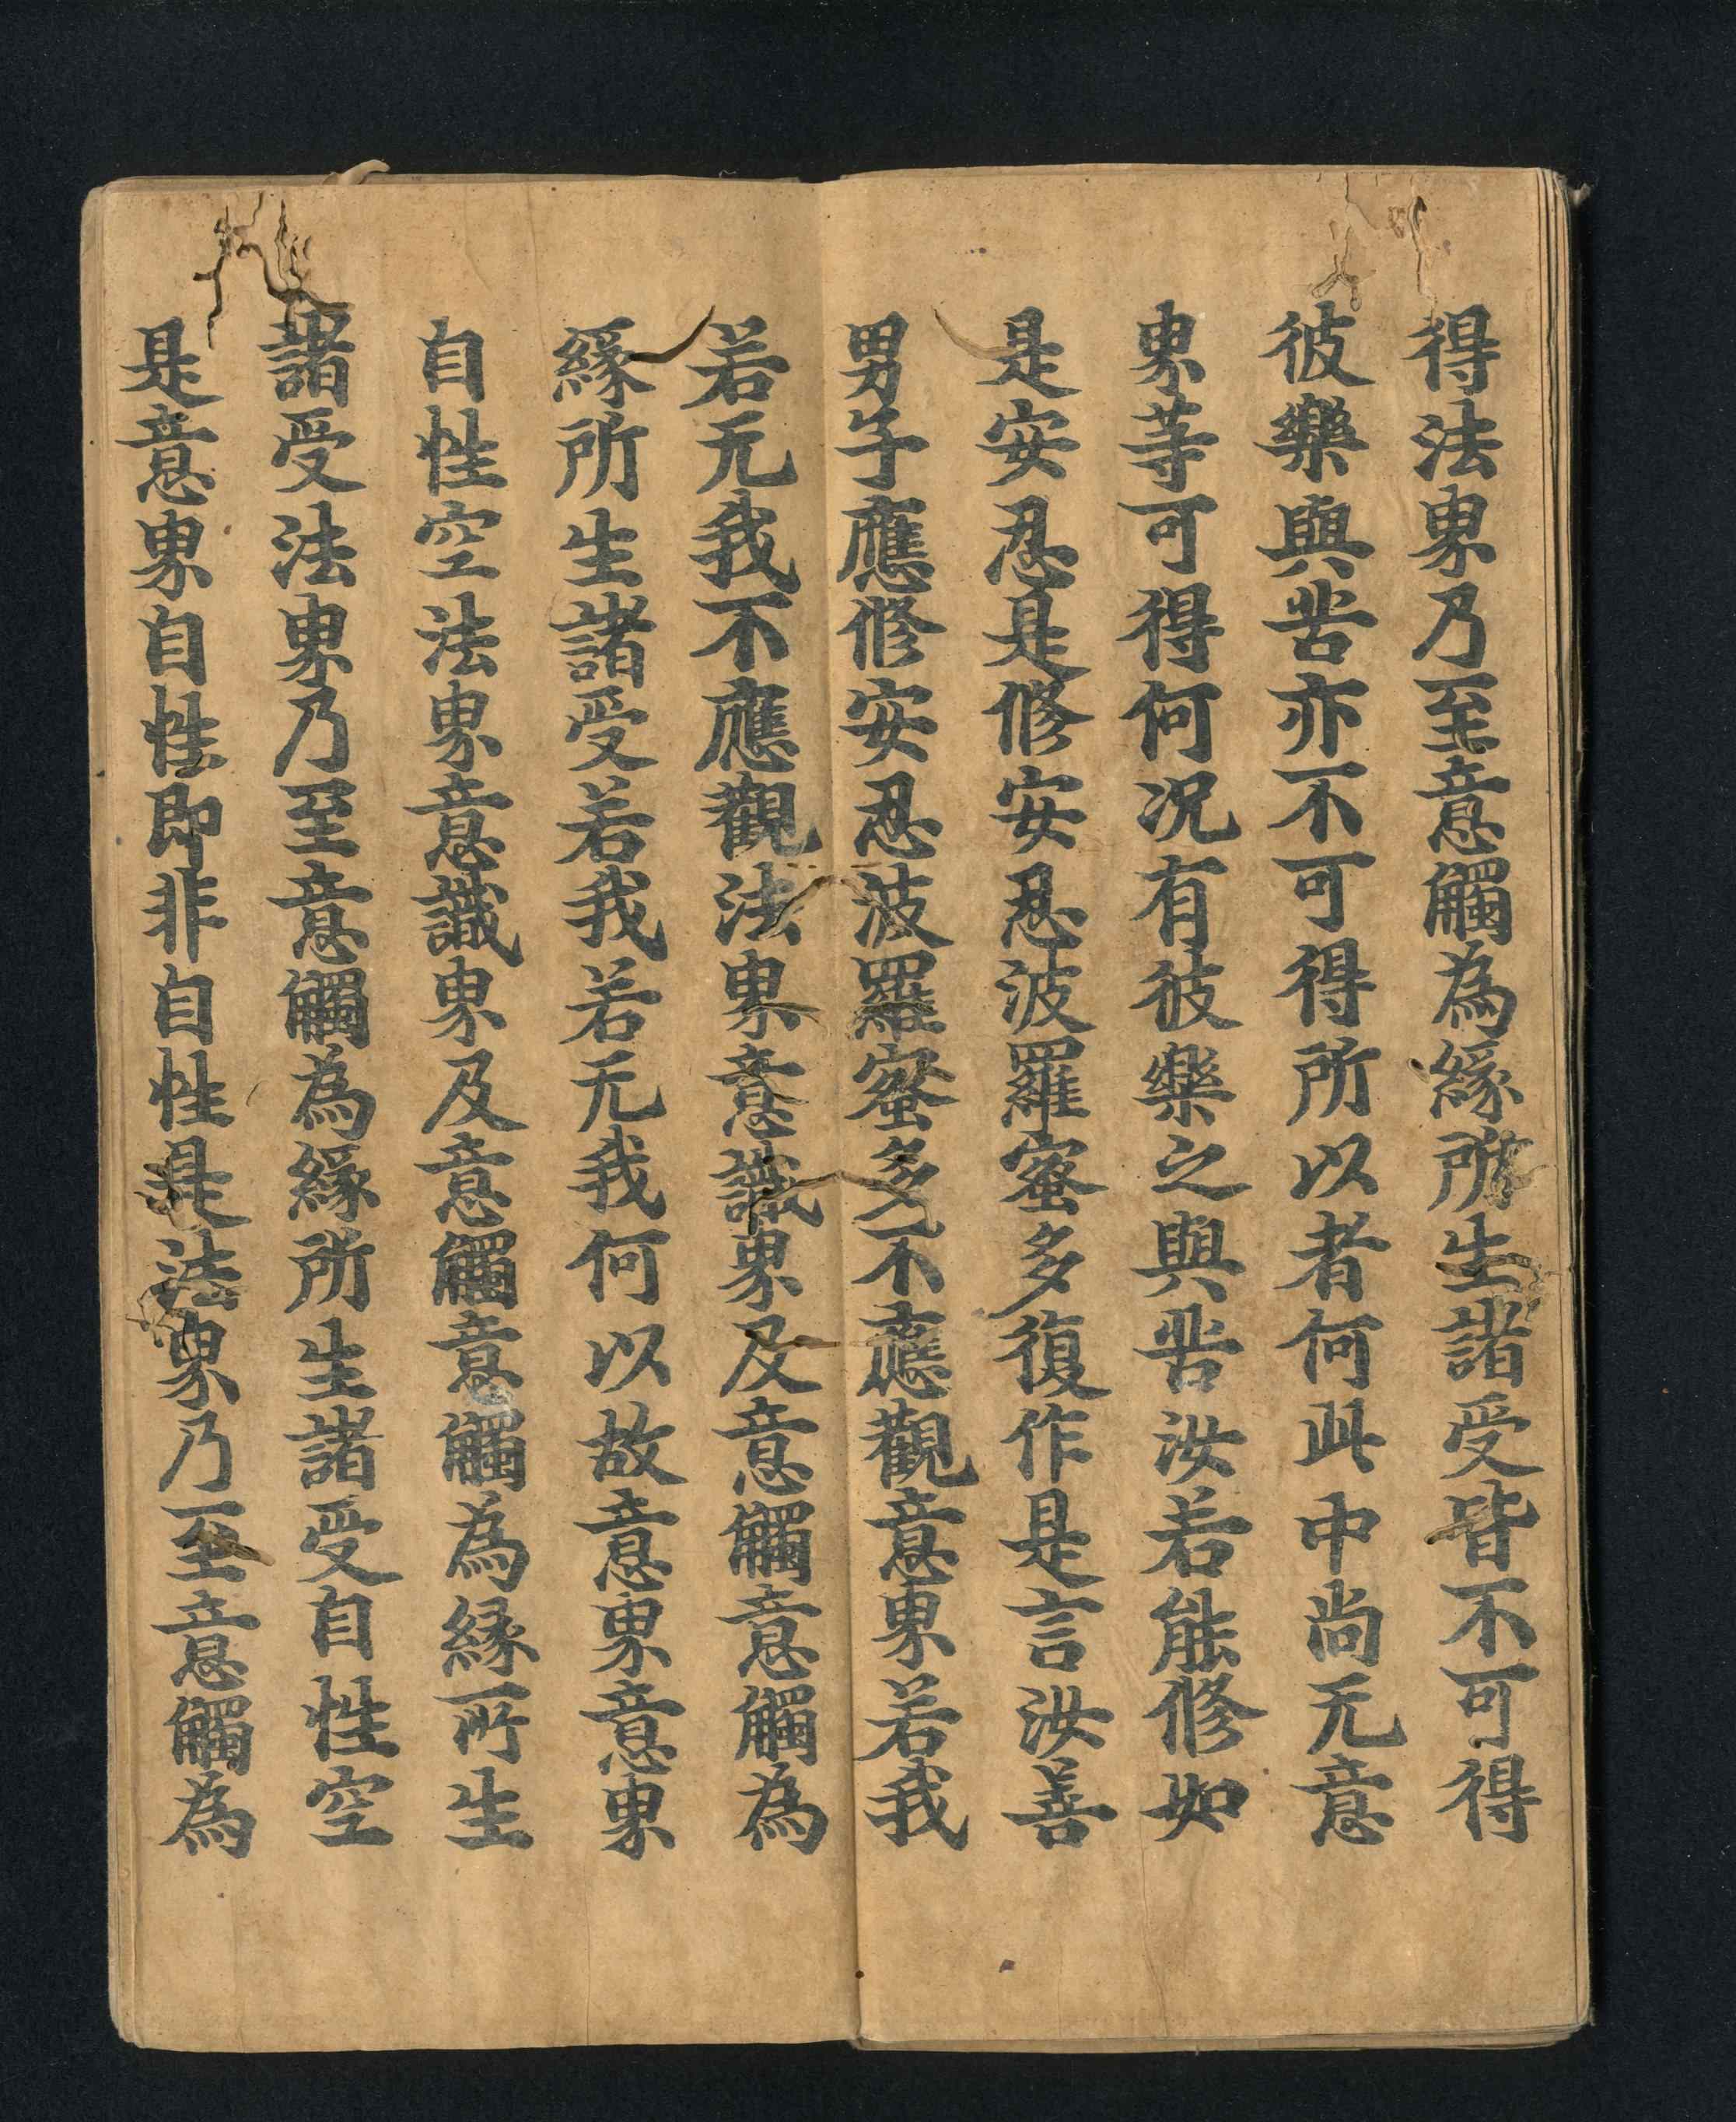 得法界乃至意觸為緣所生諸受皆不可得
彼樂與苦亦不可得所以者何此中尚无意
界等可得何况有彼樂之與苦汝若能修如
是安忍是修安忍波羅蜜多復作是言汝善
男子應修安忍波羅蜜多不應觀意界若我
若无我不應觀法界意識界及意觸意觸為
緣所生諸受若我若无我何以故意界意界
自性空法界意識界及意觸意觸為緣所生
諸受法界乃至意觸為緣所生諸受自性空
是意界自性即非自性是法界乃至意觸為